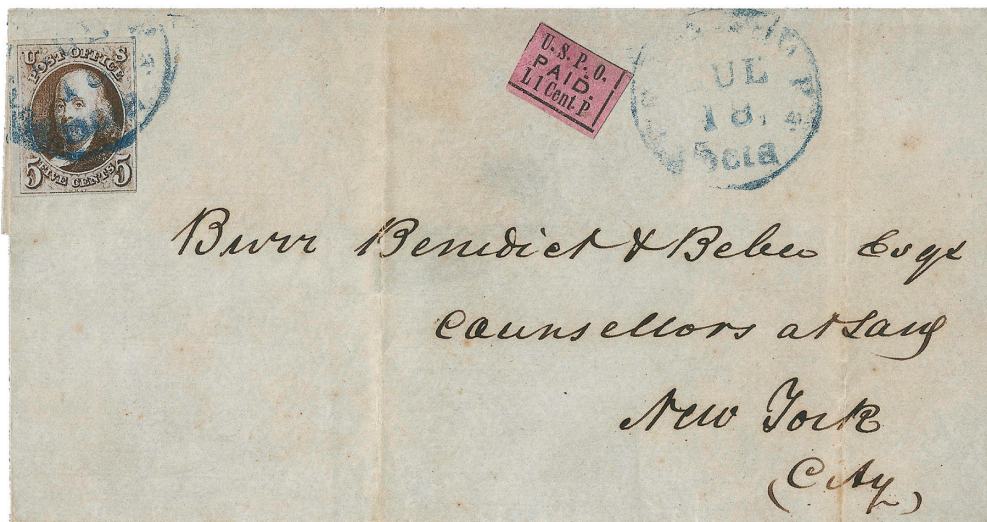 U S
POST OFFICE
5 FIVE CENTS 5
U.S.P.O.
PAID.
L 1 Cent. P
JUL
18.
5cts
Burr Benedict & Beebe Esqs
Counsellors at Law
New York
(City)